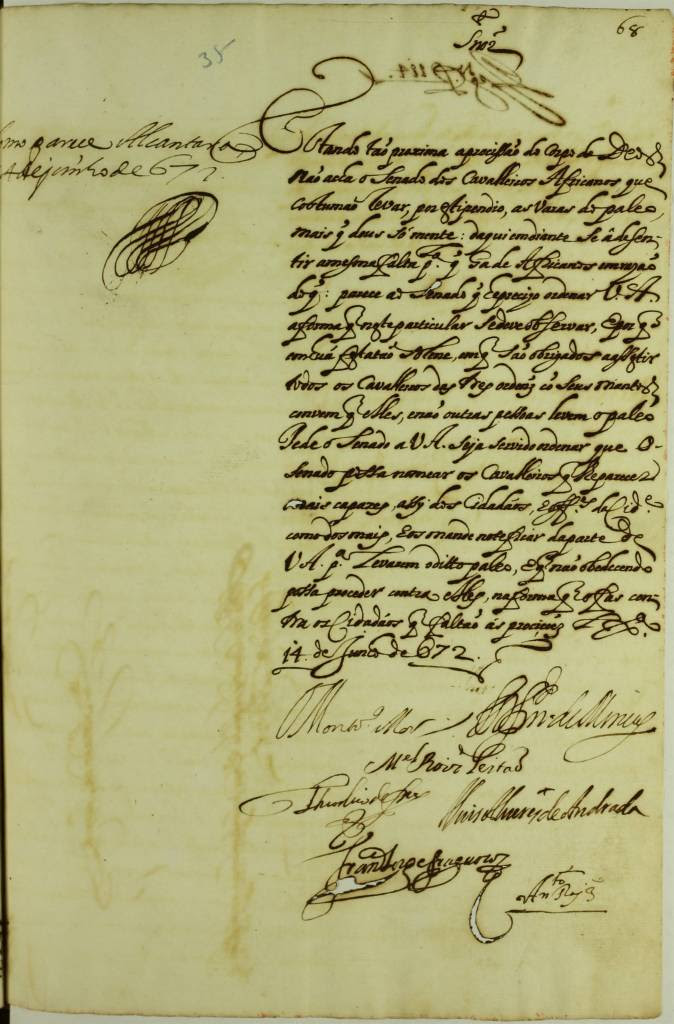 68
35
Snõr
Como parece Alcantara
14 de junho de 672
Estando tão proxima a procissão do Corpo de Deos
Não acha o Senado dos Cavalleiros Africanos que
costumão levar, por estipendio, as Varas do paleo,
mais q̃ deus Sómente: daqui em diante Se á de sen-
tir a mesma falta p.ª q̃ ha de Africanos em rezão
do q̃: parece ao Senado q̃ é preciso ordenar V. A.
a forma q̃ neste particular Se deve observar, E por q̃
em huá tão Solene, em q̃ São obrigados a assistir
todos os Cavalleiros das tres ordeñs cõ Seus mantos
convem q̃ elles, e não outras pessoas levem o paleo
Pede o Senado a V.A. Seja servido ordenar que o
Senado possa nomear os Cavalleiros q̃ lhe parecer
mais capazes, assy dos Cidadãos, E da Cid.e
como dos mais, E os mande noteficar da parte de
V A. p.ª Levarem o ditto paleo, E q̃ não obedecendo
possa proceder contra elles, na forma q̃ o fas con-
tra os Cidadãos q̃ faltão ás procições Lx.ª
14 de Junho de 672
Mont.º Mor
M.el Roiz Leitão
Luis Alvares de Andrada
Fran.co
An.to